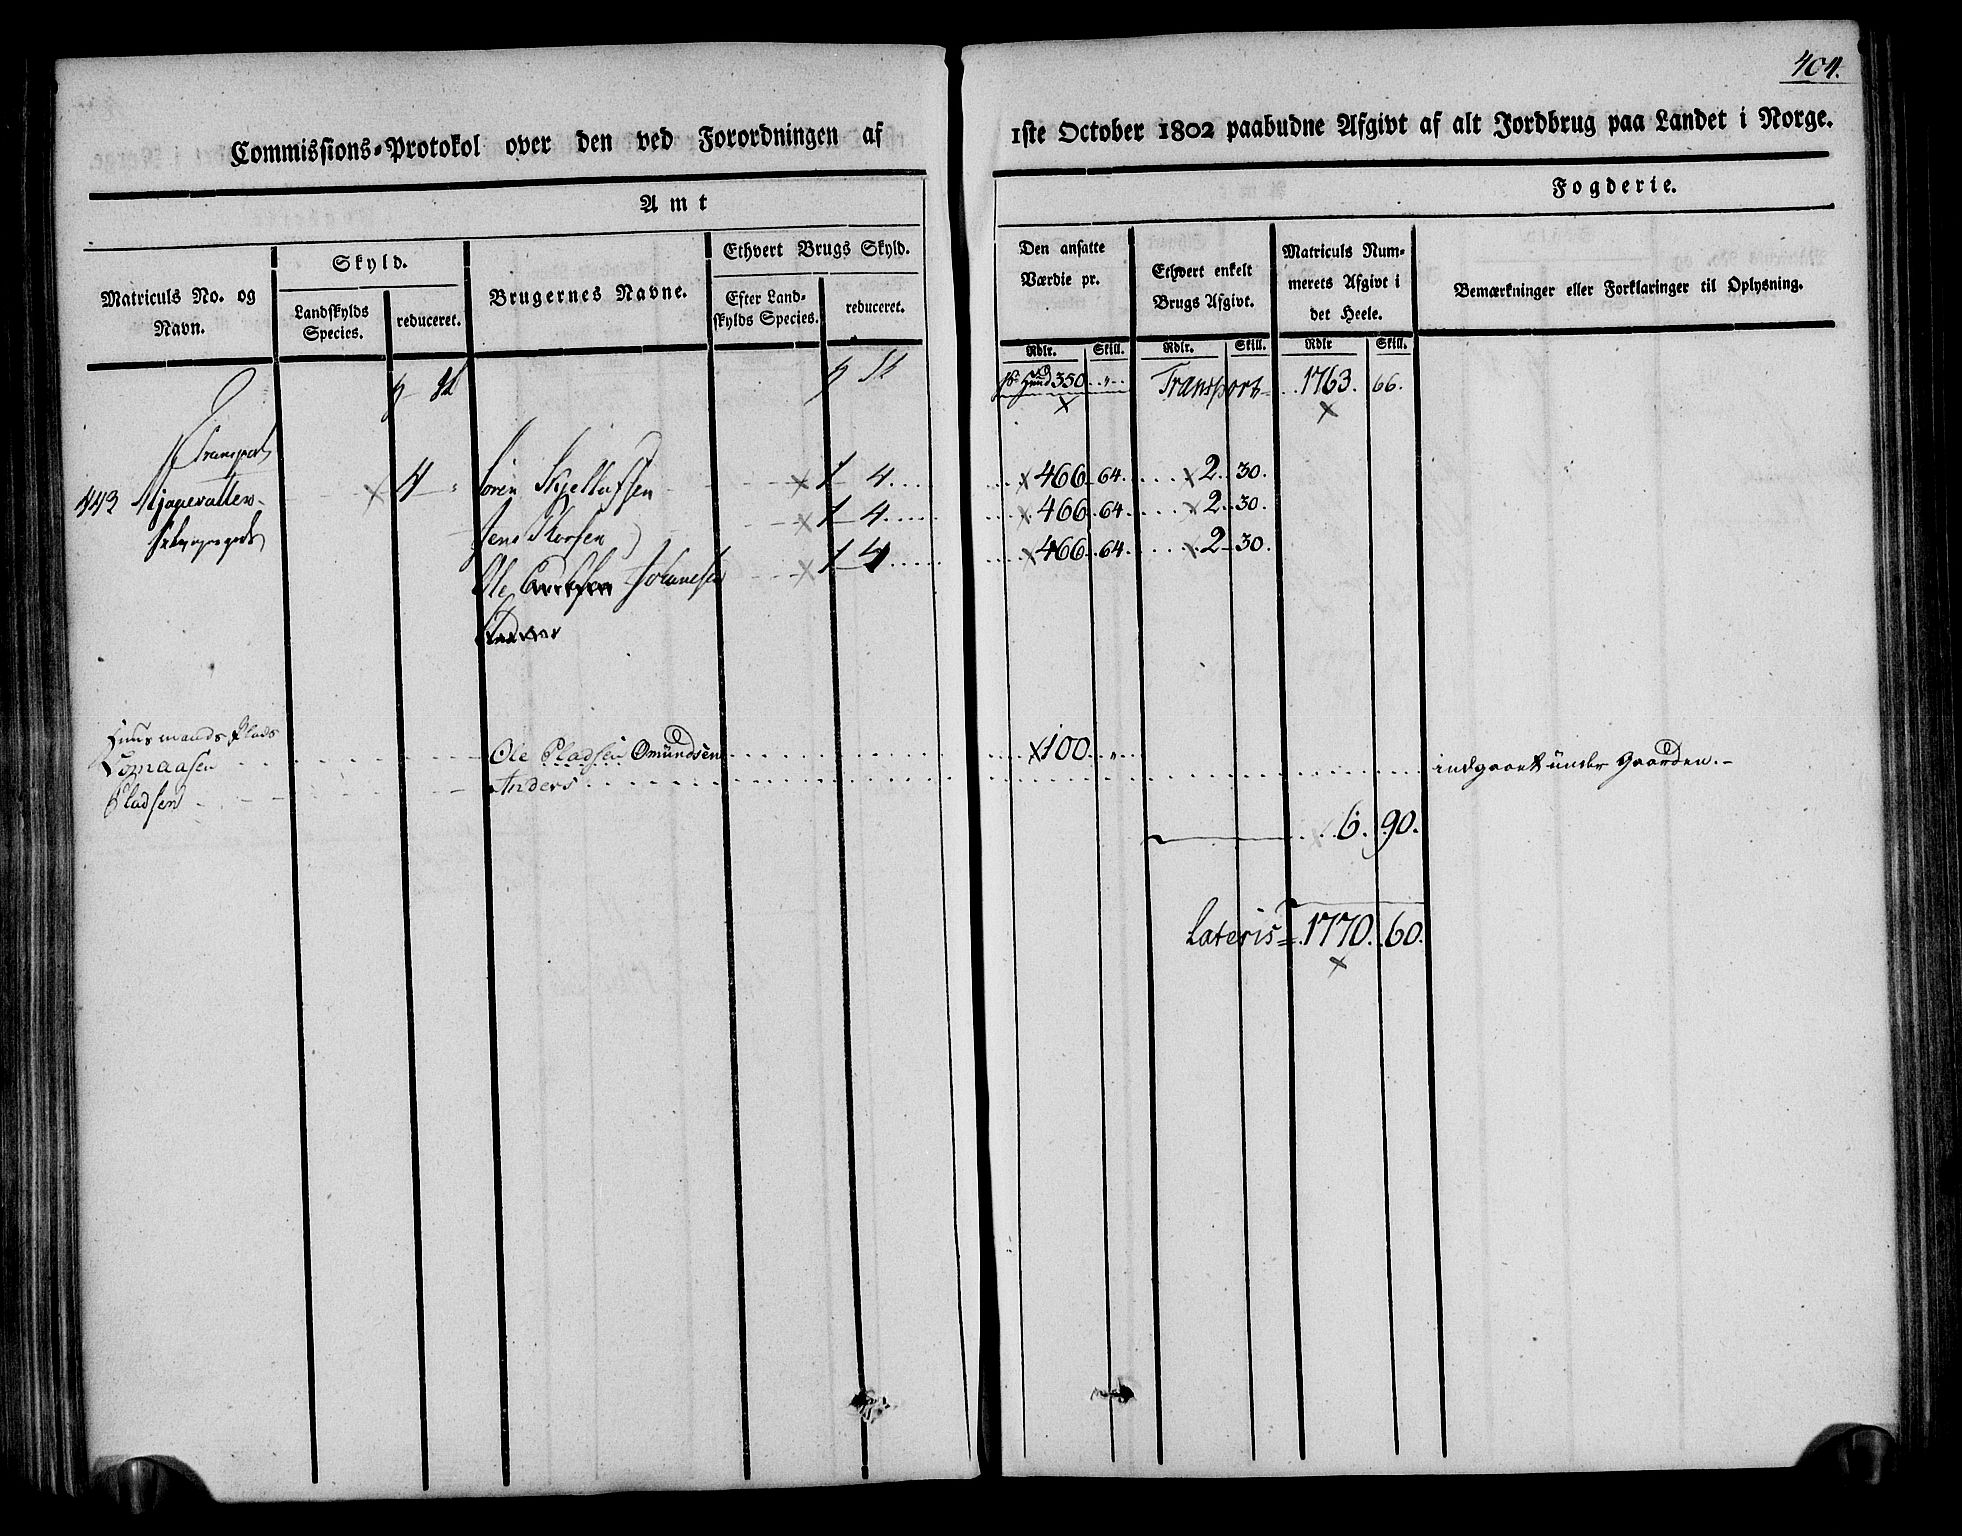 404.
Commissions-Protokol over den ved Forordningen af 1ste October 1802 paabudne Afgivt af alt Jordbrug paa Landet i Norge.
Amt Fogderie.
Matriculs No. og Navn.
Skyld.
Landskylds Species.
reduceret.
Brugernes Navne.
Ethvert Brugs Skyld.
Efter Landskylds Species.
reduceret.
Den ansatte Værdie pr.
Ethvert enkelt Brugs Afgivt.
Matriculs Nummerets Afgivt i det Heele.
Bemærkninger eller Forklaringer til Oplysning.
Rdlr. Skill. Rdlr. Skill. Rdlr Skill.
pr Hund 350 " Transport 1763. 66.
Transport
443 4 Sören 1 4 466 64. 2. 30.
Jens 1 4 466 64. 2. 30.
Ole Johannesen 1 4 466 64. 2 30.
Huusmands Plads
Lomaasen Ole Pladsen Omündsen 100 "
Pladsen Anders indgaaet ünder Gaarden.
6. 90.
Lateris 1770. 60.